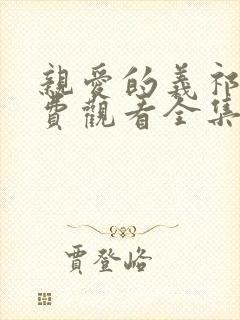 親愛的義祁
費觀看全集
賈登峪